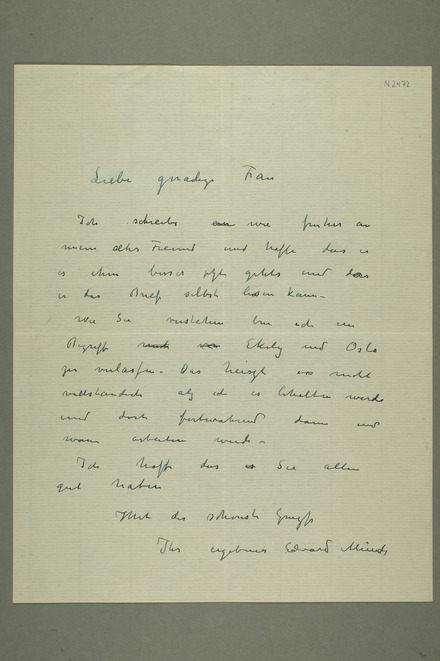 N 2472
Liebe gnadige Frau
Ich schreibe wie früher an
mein alter Freund und hoffe das es
es ihm besser jetzt gehts und das
er das Brief selbst lesen kann –
Wie Sie verstehen bin ich im
Begriff Ekely und Oslo
zu verlassen – Das heisst nicht
vollständich als ich es behalten werde
und dort fortwährend dann und
wann arbeiten werde –
Ich hoffe das Sie allen
gut haben
Mit des schönste Grüsse
Ihr ergebener Edvard Munch